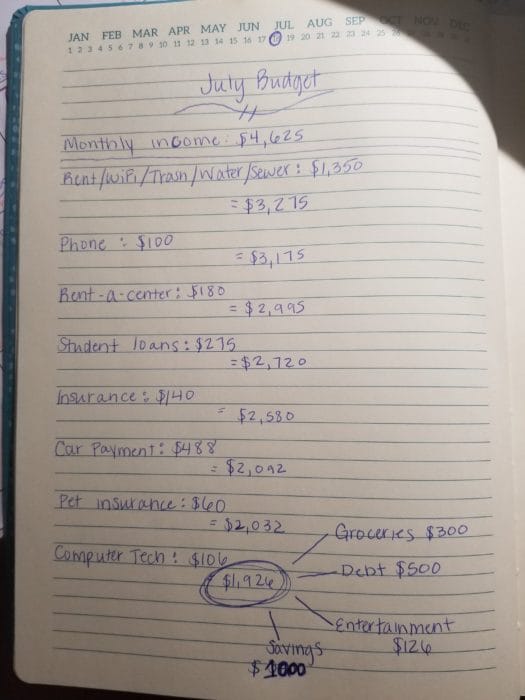 JAN FEB MAR APR MAY JUN JUL AUG SEP OCT NOV DEC
1 2 3 4 5 6 7 8 9 10 11 12 13 14 15 16 17 18 19 20 21 22 23 24 25 26
July Budget
Monthly income: $4,625
Rent/WiFi/Trash/Water/Sewer: $1,350
= $3,275
Phone: $100
= $3,175
Rent-a-center: $180
= $2,995
Student loans: $275
= $2,720
Insurance: $140
= $2,580
Car Payment: $488
= $2,092
Pet insurance: $60
= $2,032
Computer Tech: $106
$1,926
Groceries $300
Debt $500
Entertainment
$126
Savings
$1000